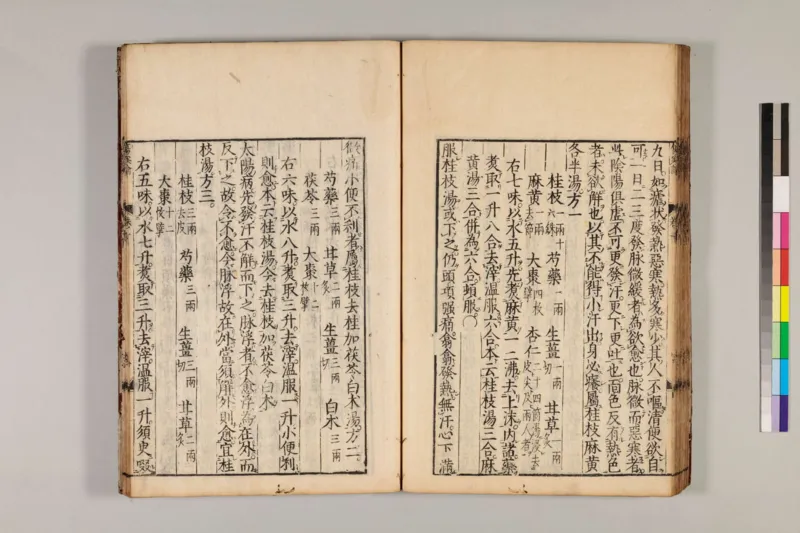 九日。如瘧狀發熱惡寒熱多寒少其人不嘔清便欲自
可一日二三度發脉微緩者為欲愈也脉微而惡寒者
此陰陽俱虛不可更發汗更下更吐也面色反有熱色
者未欲解也以其不能得小汗出身必癢屬桂枝麻黃
各半湯方一
桂枝一兩十六銖 芍藥一兩 生薑一兩切 甘草一兩炙
麻黃一兩去節 大棗四枚擘 杏仁二十四箇湯浸去皮尖及兩人者
右七味以水五升先煑麻黃一二沸去上沫內諸藥
煑取一升八合去滓温服六合本云桂枝湯三合麻
黃湯三合併為六合頓服
服桂枝湯或下之仍頭項强痛翕翕發熱無汗心下滿
微痛小便不利者屬桂枝去桂加茯苓白术湯方二。
芍藥三兩 甘草二兩炙 生薑三兩切 白术三兩
茯苓三兩 大棗十二枚擘
右六味以水八升煑取三升去滓温服一升小便利
則愈本云桂枝湯今去桂枝加茯苓白术
太陽病先發汗不解而下之脉浮者不愈浮為在外而
反下之故令不愈今脉浮故在外當須解外則愈宜桂
枝湯方三。
桂枝三兩去皮 芍藥三兩 生薑三兩切 甘草二兩炙
大棗十二枚擘
右五味以水七升煑取三升去滓温服一升須臾啜